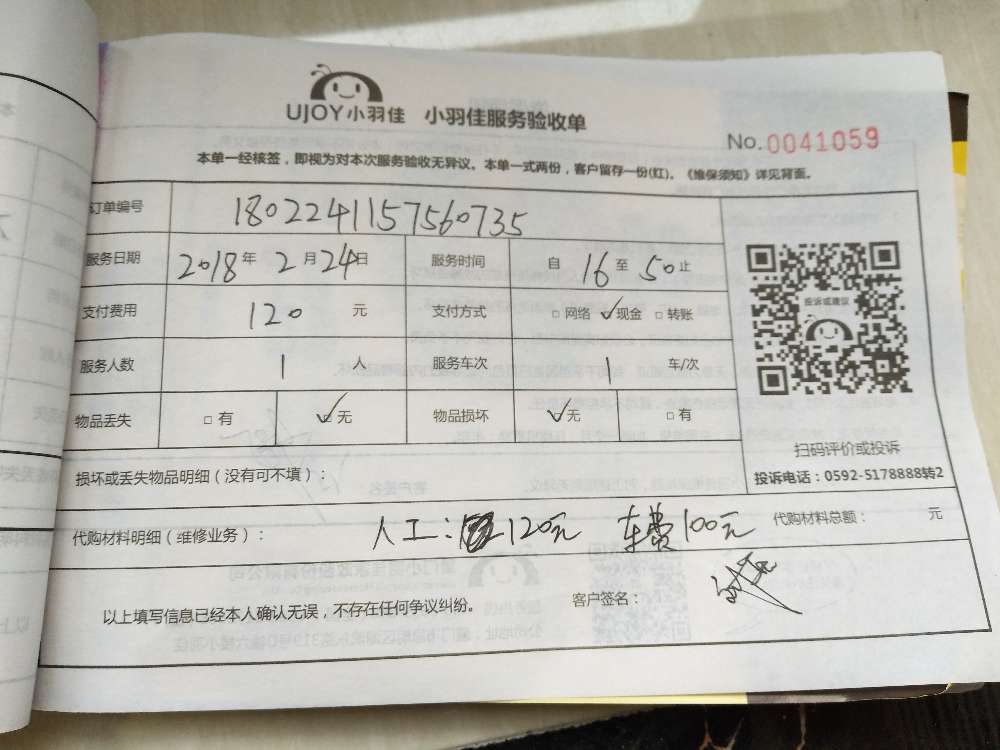 UJOY小羽佳 小羽佳服务验收单
No.0041059
本单一经核签，即视为对本次服务验收无异议。本单一式两份，客户留存一份(红)。《维保须知》详见背面。
订单编号 1802241157560735
服务日期 2018年2月24日 服务时间 自16至50止
支付费用 120元 支付方式 □网络 ☑现金 □转账
服务人数 1人 服务车次 1车/次
物品丢失 □有 ☑无 物品损坏 ☑无 □有
投诉或建议
扫码评价或投诉
投诉电话：0592-5178888转2
损坏或丢失物品明细（没有可不填）：
代购材料明细（维修业务）： 人工：120元 车费100元 代购材料总额： 元
以上填写信息已经本人确认无误，不存在任何争议纠纷。 客户签名：